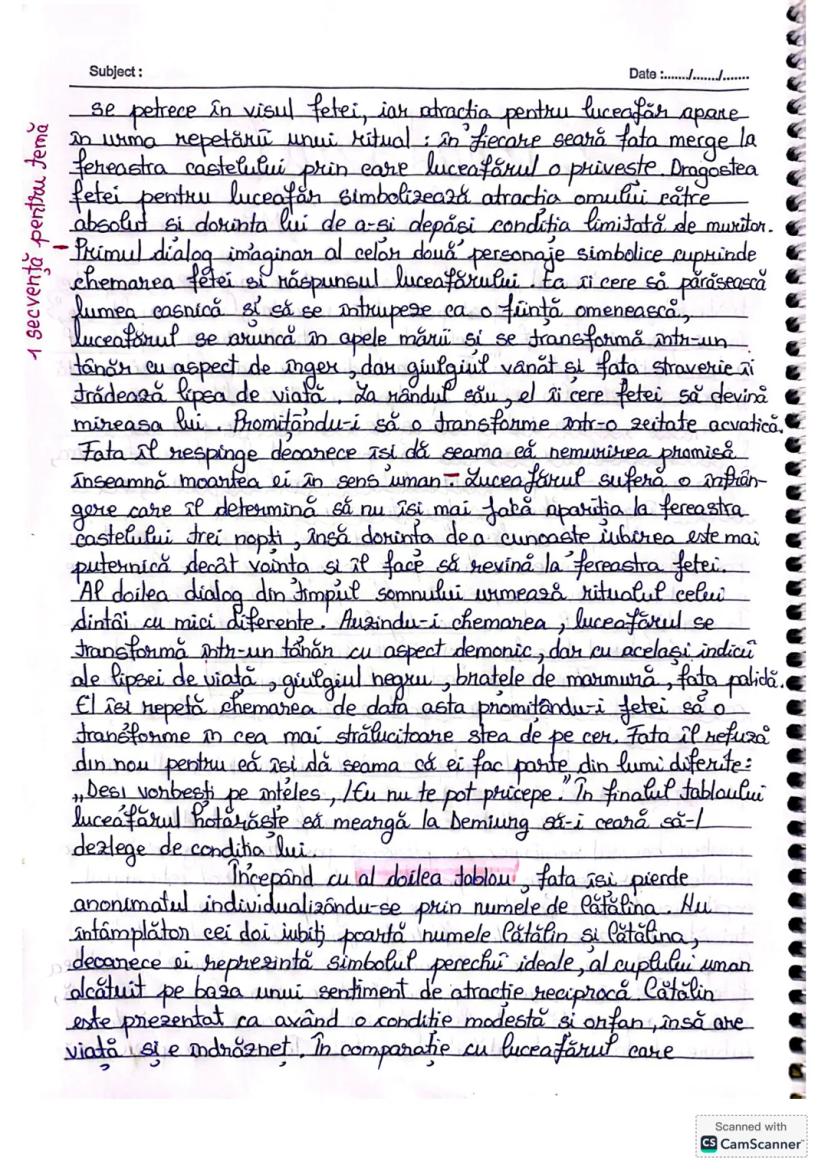 Subject :
Date :......./......./.......
se petrece în visul fetei, iar atractia pentru luceafăr apare
în urma repetării unui ritual : în fiecare seară fata merge la
fereastra castelului prin care luceafărul o priveste. Dragostea
fetei pentru luceafăr simbolizează atractia omului către
absolut si dorinta lui de a-si depăsi conditia limitată de muritor.
1 secvență pentru temă
- Primul dialog imaginar al celor două personaje simbolice cuprinde
chemarea fetei si răspunsul luceafărului. Ea îi cere să părăsească
lumea casnică si să se întrupeze ca o ființă omenească,
luceafărul se aruncă în apele mării si se transformă într-un
tânăr cu aspect de înger, dar giulgiul vânăt si fata straverie îi
trădează lipsa de viată. La rândul său, el îi cere fetei să devină
mireasa lui. Promitându-i să o transforme într-o zeitate acvatică.
Fata îl respinge deoarece îsi dă seama că nemurirea promisă
înseamnă moartea ei în sens uman - Luceafărul suferă o înfrân-
gere care îl determină să nu îsi mai facă aparitia la fereastra
castelului trei nopti, însă dorinta de a cunoaste iubirea este mai
puternică decât vointa si îl face să revină la fereastra fetei.
Al doilea dialog din timpul somnului urmează ritualul celui
dintâi cu mici diferente. Auzindu-i chemarea, luceafărul se
transformă într-un tânăr cu aspect demonic, dar cu acelasi indicii
ale lipsei de viată, giulgiul negru, bratele de marmură, fata palidă.
El îsi repetă chemarea de data asta promitându-i fetei să o
transforme în cea mai strălucitoare stea de pe cer. Fata îl refuză
din nou pentru că îsi dă seama că ei fac parte din lumi diferite:
„Desi vorbesti pe înteles, /Eu nu te pot pricepe." În finalul tabloului
luceafărul hotărăste să meargă la Demiurg să-i ceară să-l
dezlege de conditia lui.
Începând cu al doilea tablou, fata îsi pierde
anonimatul individualizându-se prin numele de Cătălina. Nu
întâmplător cei doi iubiti poartă numele Cătălin si Cătălina,
deoarece ei reprezintă simbolul perechii ideale, al cuplului uman
alcătuit pe baza unui sentiment de atractie reciprocă. Cătălin
este prezentat ca având o conditie modestă si orfan, însă are
viată si e îndrăznet. În comparatie cu luceafărul care
Scanned with
CS CamScanner